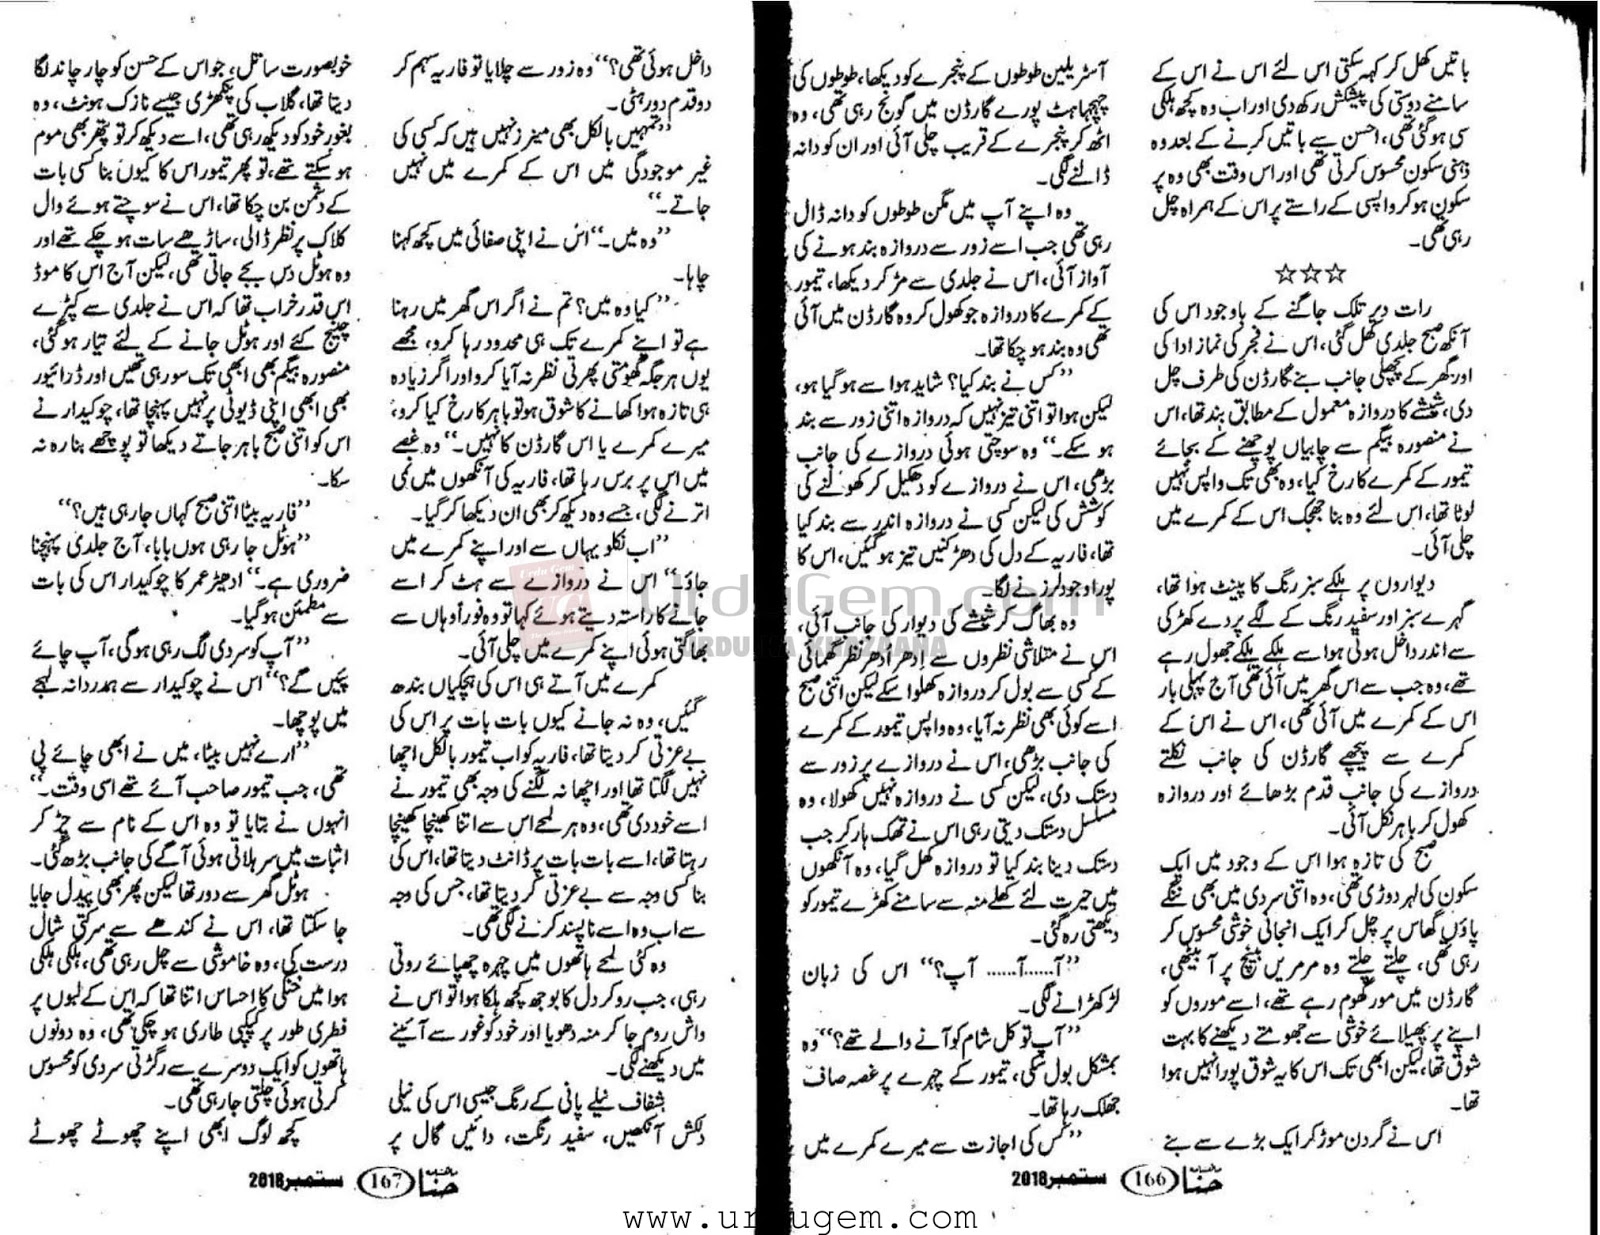 باتیں کھل کر کہہ سکتی اس لئے اس نے اس کے
سامنے دوستی کی پیشکش رکھ دی اور اب وہ کچھ ہلکی
سی ہو گئی تھی، احسن سے باتیں کرنے کے بعد وہ
ذہنی سکون محسوس کرتی تھی اور اس وقت بھی وہ پر
سکون ہو کر واپسی کے راستے پر اس کے ہمراہ چل
رہی تھی۔
☆☆☆
رات دیر تلک جاگنے کے باوجود اس کی
آنکھ صبح جلدی کھل گئی، اس نے فجر کی نماز ادا کی
اور گھر کے پچھلی جانب بنے گارڈن کی طرف چل
دی، شیشے کا دروازہ معمول کے مطابق بند تھا، اس
نے منصورہ بیگم سے چابیاں پوچھنے کے بجائے
تیمور کے کمرے کا رخ کیا، وہ ابھی تک واپس نہیں
لوٹا تھا، اس لئے وہ بنا جھجک اس کے کمرے میں
چلی آئی۔
دیواروں پر ہلکے سبز رنگ کا پینٹ ہوا تھا،
گہرے سبز اور سفید رنگ کے لگے پردے کھڑکی
سے اندر داخل ہوتی ہوا سے ہلکے ہلکے جھول رہے
تھے، وہ جب سے اس گھر میں آئی تھی آج پہلی بار
اس کے کمرے میں آئی تھی، اس نے اس کے
کمرے سے پیچھے گارڈن کی جانب نکلتے
دروازے کی جانب قدم بڑھائے اور دروازہ
کھول کر باہر نکل آئی۔
صبح کی تازہ ہوا اس کے وجود میں ایک
سکون کی لہر دوڑی تھی، وہ اتنی سردی میں بھی ننگے
پاؤں گھاس پر چل کر ایک انجانی خوشی محسوس کر
رہی تھی، چلتے چلتے وہ مرمریں بینچ پر آ بیٹھی،
گارڈن میں مور گھوم رہے تھے، اسے موروں کو
اپنے پر پھیلائے خوشی سے جھومتے دیکھنے کا بہت
شوق تھا، لیکن ابھی تک اس کا یہ شوق پورا نہیں ہوا
تھا۔
اس نے گردن موڑ کر ایک بڑے سے بنے
آسٹریلین طوطوں کے پنجرے کو دیکھا، طوطوں کی
چہچہاہٹ پورے گارڈن میں گونج رہی تھی، وہ
اٹھ کر پنجرے کے قریب چلی آئی اور ان کو دانہ
ڈالنے لگی۔
وہ اپنے آپ میں مگن طوطوں کو دانہ ڈال
رہی تھی جب اسے زور سے دروازہ بند ہونے کی
آواز آئی، اس نے جلدی سے مڑ کر دیکھا، تیمور
کے کمرے کا دروازہ جو کھول کر وہ گارڈن میں آئی
تھی وہ بند ہو چکا تھا۔
”کس نے بند کیا؟ شاید ہوا سے ہو گیا ہو،
لیکن ہوا تو اتنی تیز نہیں کہ دروازہ اتنی زور سے بند
ہو سکے۔“ وہ سوچتی ہوئی دروازے کی جانب
بڑھی، اس نے دروازے کو دھکیل کر کھولنے کی
کوشش کی لیکن کسی نے دروازہ اندر سے بند کیا
تھا، فاریہ کے دل کی دھڑکنیں تیز ہو گئیں، اس کا
پورا وجود لرزنے لگا۔
وہ بھاگ کر شیشے کی دیوار کی جانب آئی،
اس نے متلاشی نظروں سے اِدھر اُدھر نظر گھمائی
کے کسی سے بول کر دروازہ کھلوا سکے لیکن اتنی صبح
اسے کوئی بھی نظر نہ آیا، وہ واپس تیمور کے کمرے
کی جانب بڑھی، اس نے دروازے پر زور سے
دستک دی، لیکن کسی نے دروازہ نہیں کھولا، وہ
مسلسل دستک دیتی رہی اس نے تھک ہار کر جب
دستک دینا بند کیا تو دروازہ کھل گیا، وہ آنکھوں
میں حیرت لئے کھلے منہ سے سامنے کھڑے تیمور کو
دیکھتی رہ گئی۔
”آ......آ...... آپ؟“ اس کی زبان
لڑکھڑانے لگی۔
”آپ تو کل شام کو آنے والے تھے؟“ وہ
بمشکل بول سکی، تیمور کے چہرے پر غصہ صاف
جھلک رہا تھا۔
”کس کی اجازت سے میرے کمرے میں
ماہنامہ حنا 166 ستمبر 2018
داخل ہوئی تھی؟“ وہ زور سے چلایا تو فاریہ سہم کر
دو قدم دور ہٹی۔
”تمہیں بالکل بھی مینرز نہیں ہیں کہ کسی کی
غیر موجودگی میں اس کے کمرے میں نہیں
جاتے۔“
”وہ میں۔“ اس نے اپنی صفائی میں کچھ کہنا
چاہا۔
”کیا وہ میں؟ تم نے اگر اس گھر میں رہنا
ہے تو اپنے کمرے تک ہی محدود رہا کرو، مجھے
یوں ہر جگہ گھومتی پھرتی نظر نہ آیا کرو اور اگر زیادہ
ہی تازہ ہوا کھانے کا شوق ہو تو باہر کا رخ کیا کرو،
میرے کمرے یا اس گارڈن کا نہیں۔“ وہ غصے
میں اس پر برس رہا تھا، فاریہ کی آنکھوں میں نمی
اترنے لگی، جسے وہ دیکھ کر بھی ان دیکھا کر گیا۔
”اب نکلو یہاں سے اور اپنے کمرے میں
جاؤ۔“ اس نے دروازے سے ہٹ کر اسے
جانے کا راستہ دیتے ہوئے کہا تو وہ فوراً وہاں سے
بھاگتی ہوئی اپنے کمرے میں چلی آئی۔
کمرے میں آتے ہی اس کی ہچکیاں بندھ
گئیں، وہ نہ جانے کیوں بات بات پر اس کی
بے عزتی کر دیتا تھا، فاریہ کو اب تیمور بالکل اچھا
نہیں لگتا تھا اور اچھا نہ لگنے کی وجہ بھی تیمور نے
اسے خود دی تھی، وہ ہر لمحے اس سے اتنا کھینچا کھینچا
رہتا تھا، اسے بات بات پر ڈانٹ دیتا تھا، اس کی
بنا کسی وجہ سے بے عزتی کر دیتا تھا، جس کی وجہ
سے اب وہ اسے ناپسند کرنے لگی تھی۔
وہ کئی لمحے ہاتھوں میں چہرہ چھپائے روتی
رہی، جب رو کر دل کا بوجھ کچھ ہلکا ہوا تو اس نے
واش روم جا کر منہ دھویا اور خود کو غور سے آئینے
میں دیکھنے لگی۔
شفاف نیلے پانی کے رنگ جیسی اس کی نیلی
دلکش آنکھیں، سفید رنگت، دائیں گال پر
خوبصورت سا تل، جو اس کے حسن کو چار چاند لگا
دیتا تھا، گلاب کی پنکھڑی جیسے نازک ہونٹ، وہ
بغور خود کو دیکھ رہی تھی، اسے دیکھ کر تو پتھر بھی موم
ہو سکتے تھے، تو پھر تیمور اس کا کیوں بنا کسی بات
کے دشمن بن چکا تھا، اس نے سوچتے ہوئے وال
کلاک پر نظر ڈالی، ساڑھے سات ہو چکے تھے اور
وہ ہوٹل دس بجے جاتی تھی، لیکن آج اس کا موڈ
اس قدر خراب تھا کہ اس نے جلدی سے کپڑے
چینج کئے اور ہوٹل جانے کے لئے تیار ہو گئی،
منصورہ بیگم بھی ابھی تک سو رہی تھیں اور ڈرائیور
بھی ابھی اپنی ڈیوٹی پر نہیں پہنچا تھا، چوکیدار نے
اس کو اتنی صبح باہر جاتے دیکھا تو پوچھے بنا رہ نہ
سکا۔
”فاریہ بیٹا اتنی صبح کہاں جا رہی ہیں؟“
”ہوٹل جا رہی ہوں بابا، آج جلدی پہنچنا
ضروری ہے۔“ ادھیڑ عمر کا چوکیدار اس کی بات
سے مطمئن ہو گیا۔
”آپ کو سردی لگ رہی ہو گی، آپ چائے
پئیں گے؟“ اس نے چوکیدار سے ہمدردانہ لہجے
میں پوچھا۔
”ارے نہیں بیٹا، میں نے ابھی چائے پی
تھی، جب تیمور صاحب آئے تھے اسی وقت۔“
انہوں نے بتایا تو وہ اس کے نام سے چڑ کر
اثبات میں سر ہلاتی ہوئی آگے کی جانب بڑھ گئی۔
ہوٹل گھر سے دور تھا لیکن پھر بھی پیدل جایا
جا سکتا تھا، اس نے کندھے سے سرکتی شال
درست کی، وہ خاموشی سے چل رہی تھی، ہلکی ہلکی
ہوا میں خنکی کا احساس اتنا تھا کہ اس کے لبوں پر
فطری طور پر کپکپی طاری ہو چکی تھی، وہ دونوں
ہاتھوں کو ایک دوسرے سے رگڑتی سردی کو محسوس
کرتی ہوئی چلتی جا رہی تھی۔
کچھ لوگ ابھی اپنے چھوٹے چھوٹے
ماہنامہ حنا 167 ستمبر 2018
Urdu Gem
UrduGem.com
www.urdugem.com